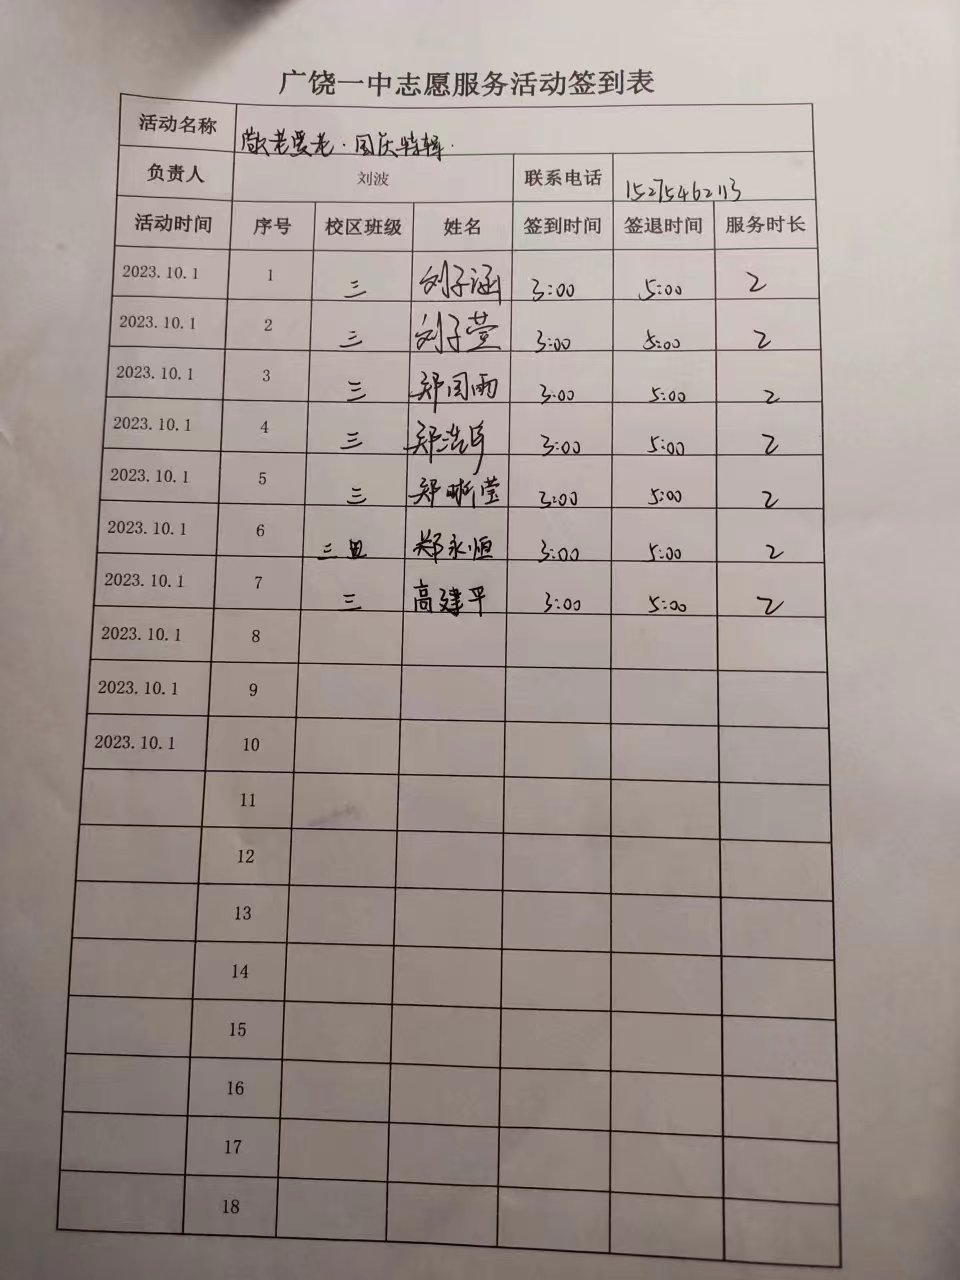 广饶一中志愿服务活动签到表
活动名称 敬老爱老·国庆特辑·
负责人 刘波 联系电话 15275462113
活动时间 序号 校区班级 姓名 签到时间 签退时间 服务时长
2023.10.1 1 三 刘子涵 3:00 5:00 2
2023.10.1 2 三 刘子萱 3:00 5:00 2
2023.10.1 3 三 郑闰雨 3:00 5:00 2
2023.10.1 4 三 郑浩 3:00 5:00 2
2023.10.1 5 三 郑晰莹 3:00 5:00 2
2023.10.1 6 三 郑永恒 3:00 5:00 2
2023.10.1 7 三 高建平 3:00 5:00 2
2023.10.1 8
2023.10.1 9
2023.10.1 10
11
12
13
14
15
16
17
18